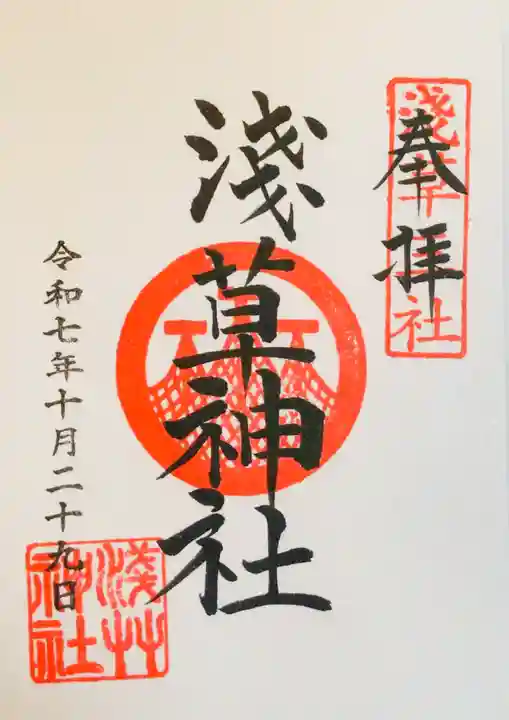 奉拝
淺草神社
令和七年十月二十九日
淺草神社